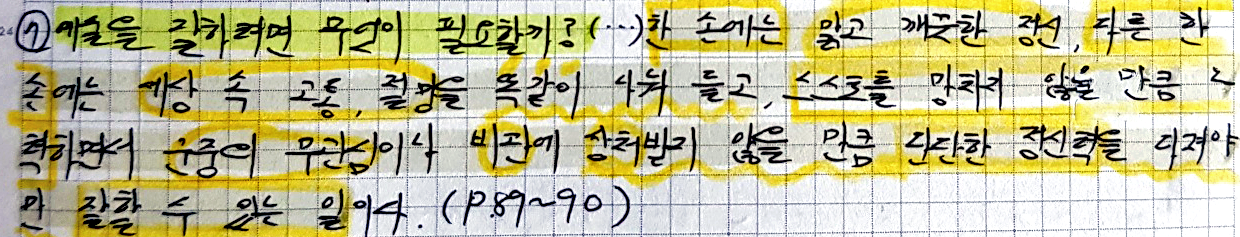 ⑦ 예술을 잘하려면 무엇이 필요할까? (…) 한 손에는 맑고 깨끗한 정신, 다른 한
손에는 세상 속 고통, 절망을 똑같이 나눠 들고, 스스로를 망치지 않을 만큼 노
력하면서 군중의 무관심이나 비판에 상처받지 않을 만큼 단단한 정신력을 다져야
만 잘할 수 있는 일이다. (P.89~90)